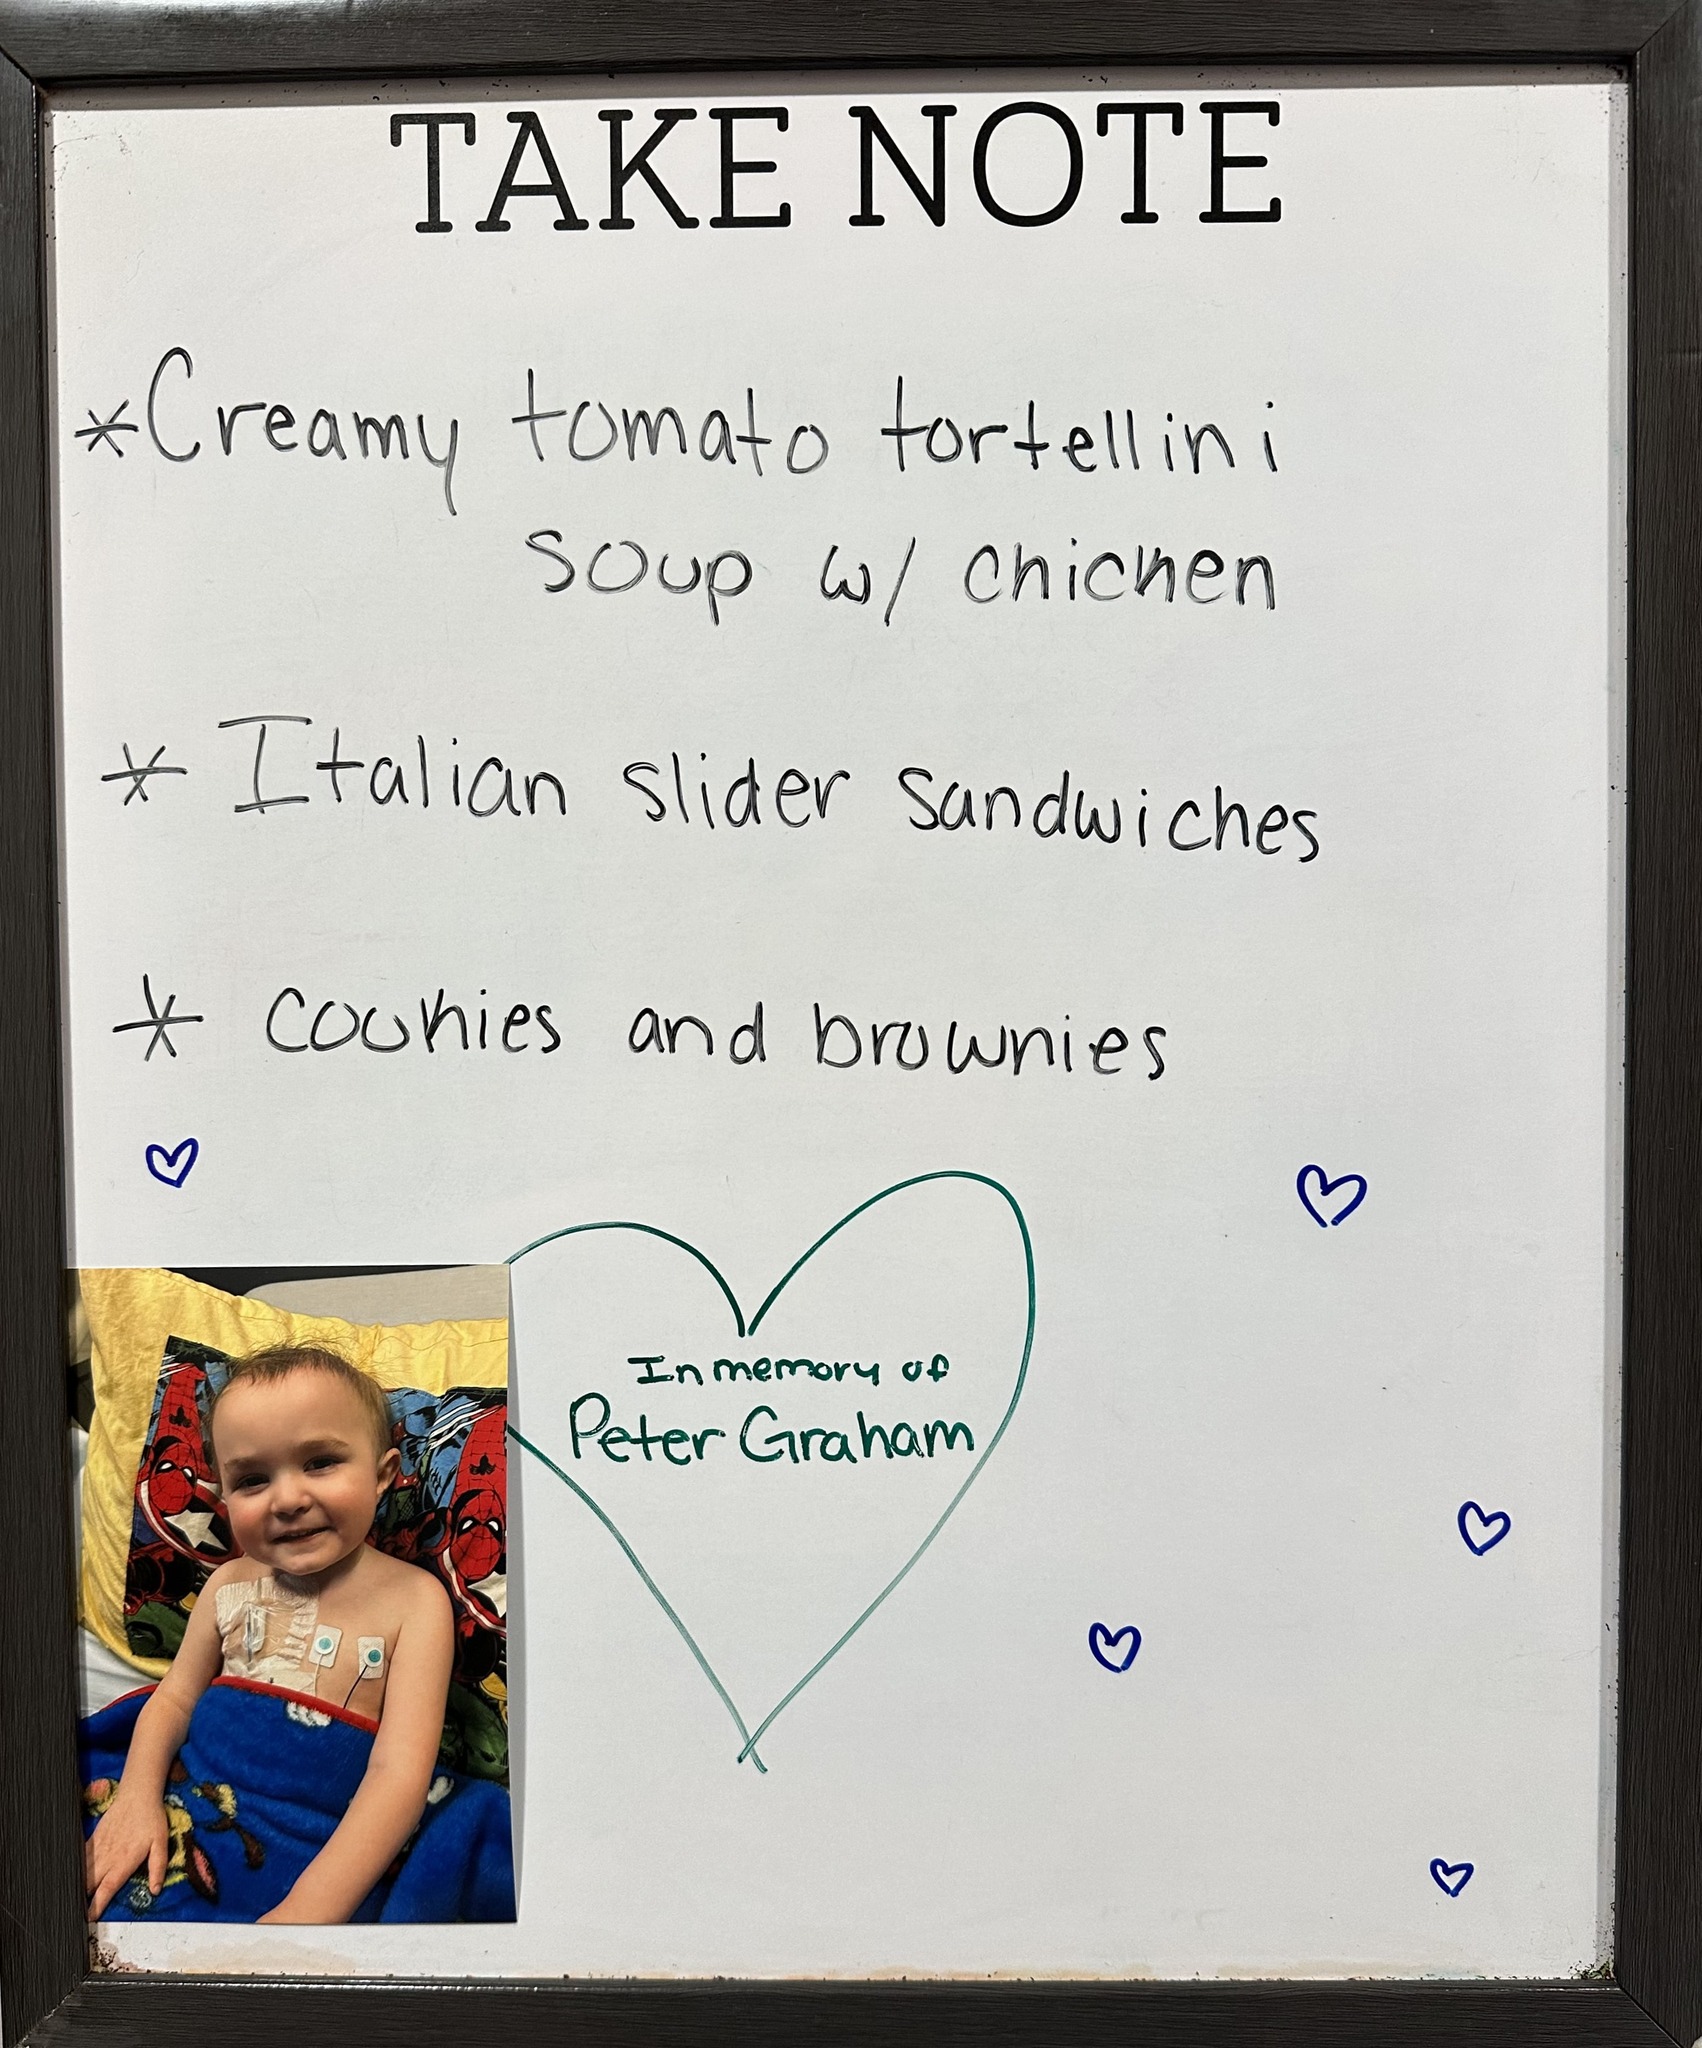 TAKE NOTE
*Creamy tomato tortellini
soup w/ chicken
* Italian slider sandwiches
* cookies and brownies
In memory of
Peter Graham